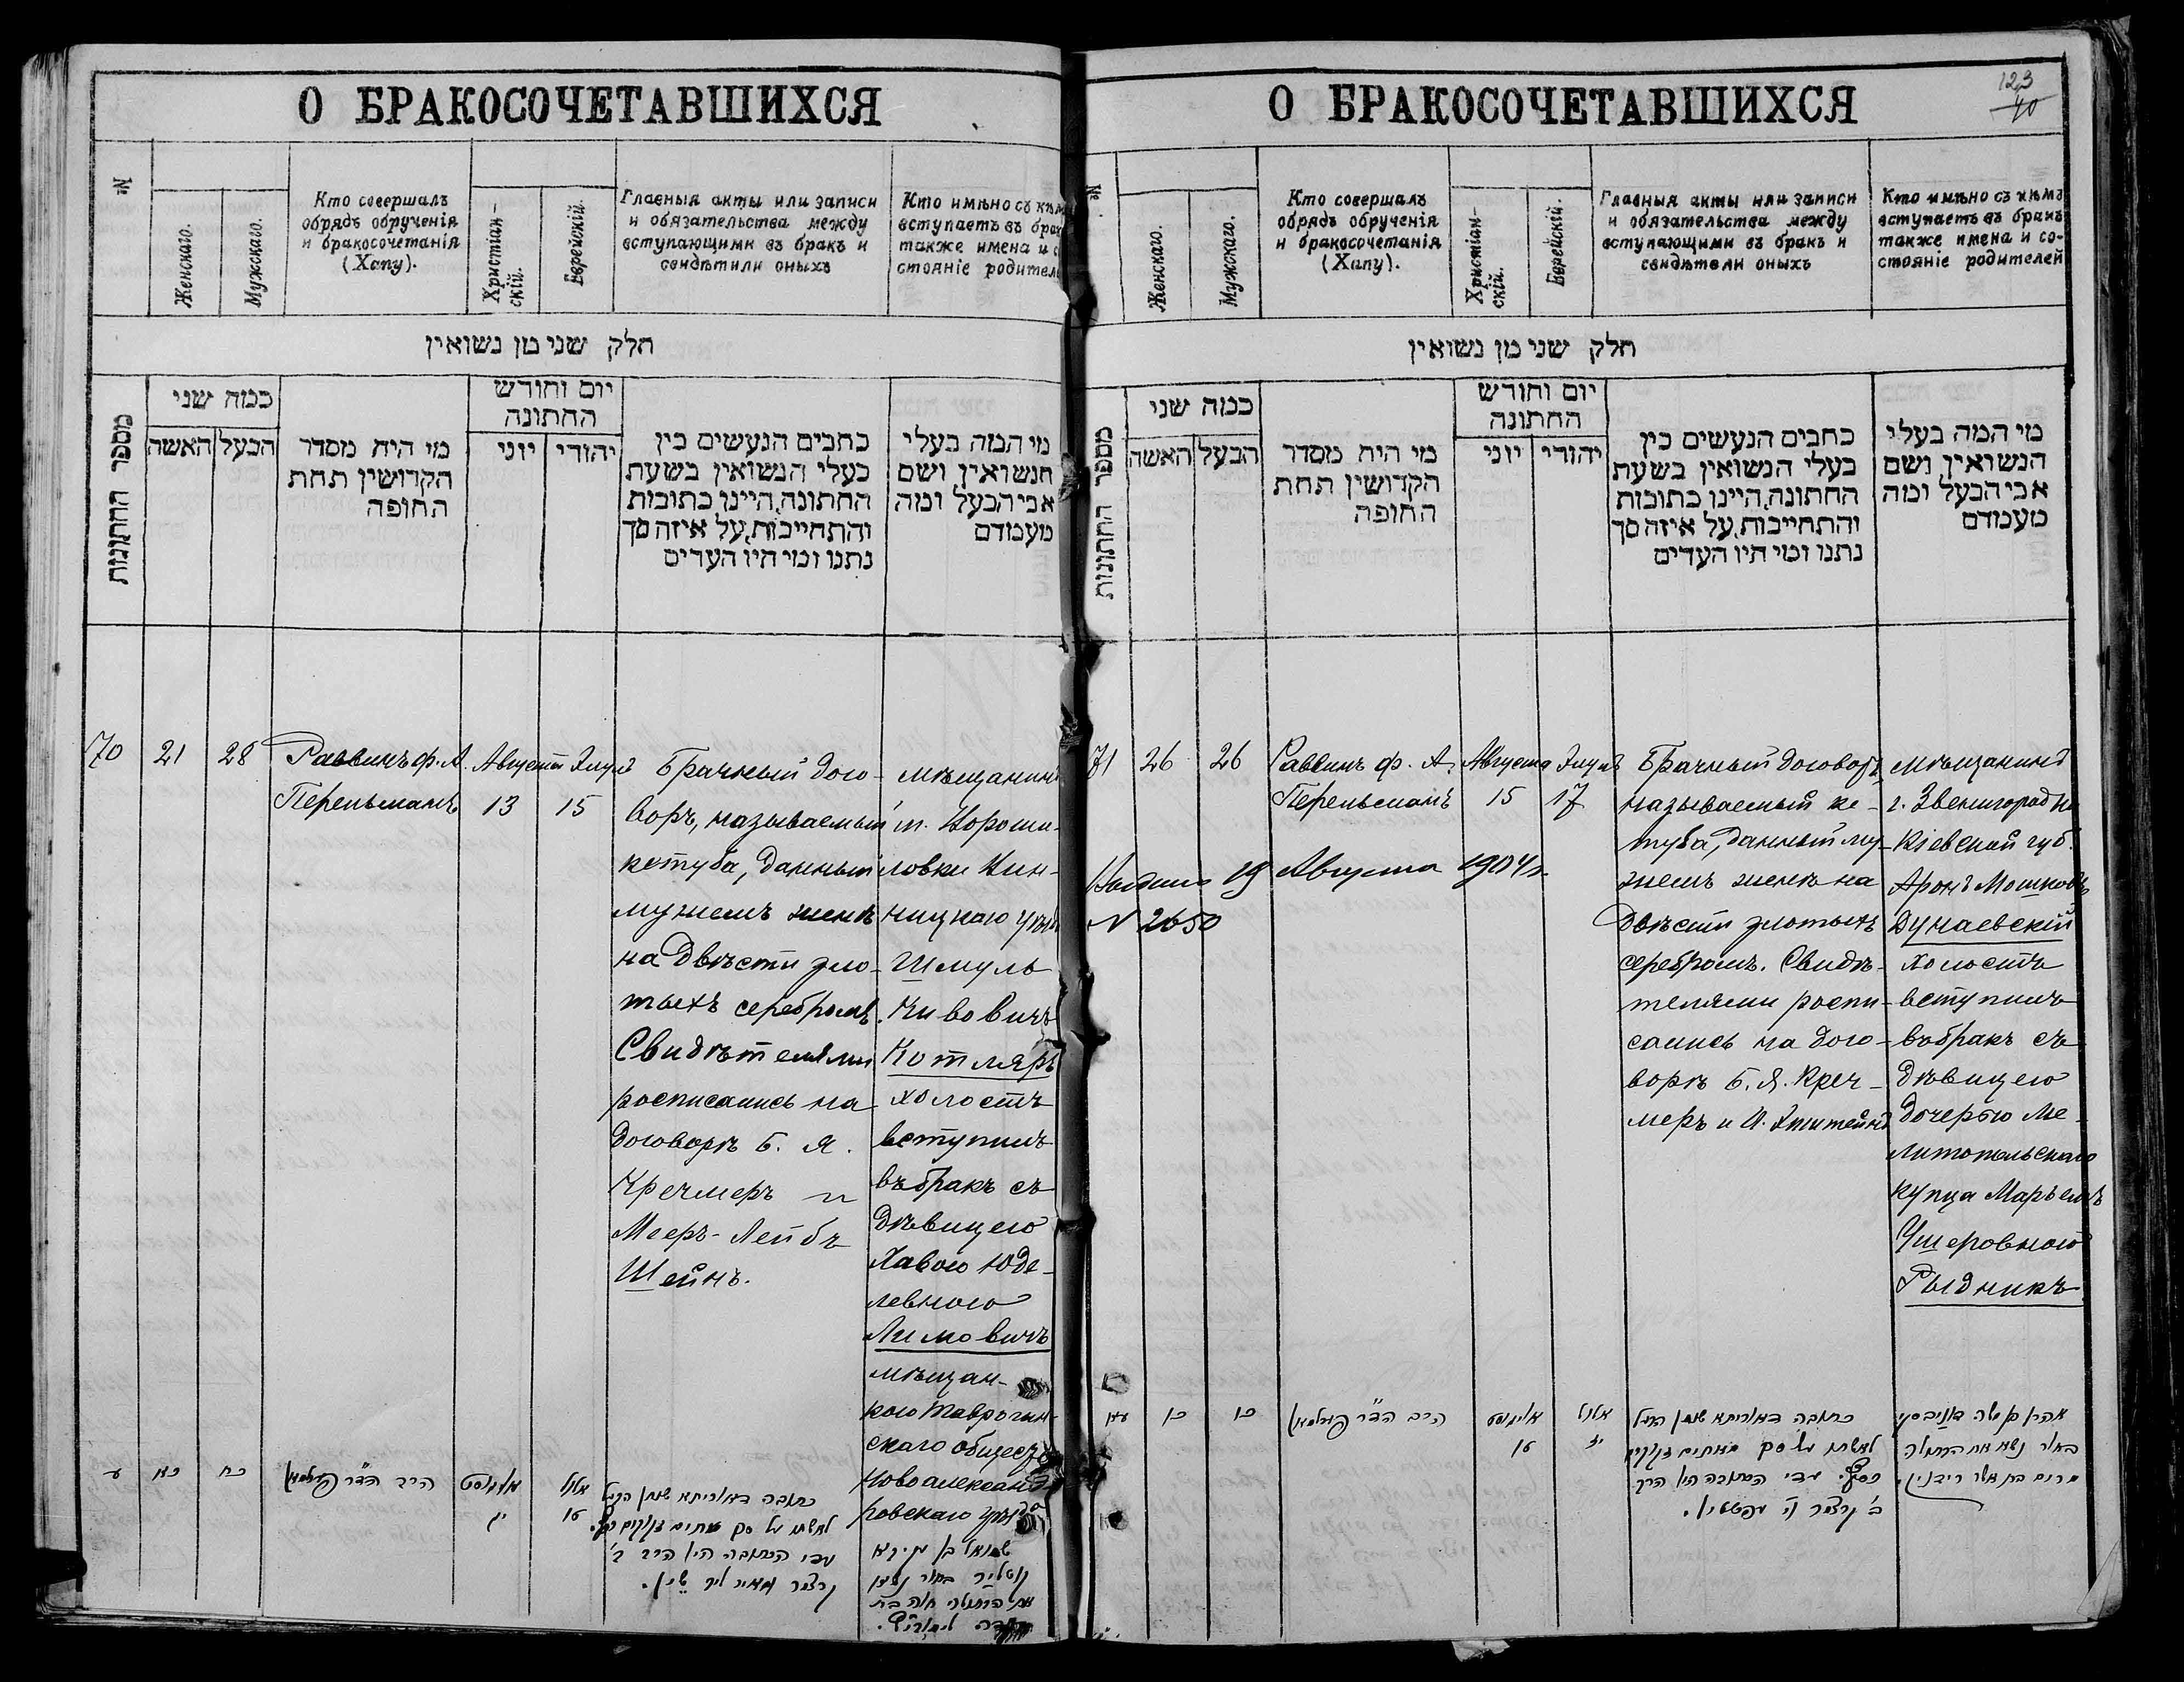 О БРАКОСОЧЕТАВШИХСЯ
№
Женскаго.
Мужскаго.
Кто совершалъ
обрядъ обрученія
и бракосочетанія
(Хупу).
Христіан-
скій.
Еврейскій.
Главныя акты или записи
и обязательства между
вступающими въ бракъ и
свидѣтели оныхъ
Кто имѣно съ кѣмъ
вступаетъ въ брак
также имена и с
стояніе родител
חלק שני מן נשואין
מספר החתונות
כמה שני
האשה
הבעל
מי היה מסדר
הקדושין תחת
החופה
יום וחודש
החתונה
יוני
יהודי
כתבים הנעשים בין
בעלי הנשואין בשעת
החתונה, היינו כתובות
והתחייבות, על איזה סך
נתנו ומי היו העדים
מי המה בעלי
הנשואין ושם
אבי הבעל ומה
מעמדם
70
21
28
Раввинъ ф. А.
Перельманъ
Августа
13
Элулъ
15
Брачный дого-
воръ, называемый
кетуба, данный
мужемъ женѣ
на двѣсти зло-
тыхъ серебромъ.
Свидѣтелями
росписались на
договорѣ Б. Я.
Кречмеръ и
Мееръ-Лейбъ
Шейнъ.
мѣщанинъ
м. Вороши-
ловки Вин-
ницкаго уѣзда
Шмуль
Кивовичъ
Котляръ
холостъ
вступилъ
въ бракъ съ
дѣвицею
Хавою Юде-
левною
Лимовичъ
мѣщан-
кою Таврогин-
скаго общества
Новоалександ-
ровскаго уѣзда
ע
כא
כח
הרב הד"ר פערלמאן
אויגוסט
יג
אלול
טו
כתובה דאוריתא שנתן הבעל
לאשתו על סך מאתים זקוקים כסף.
עדי הכתובה היו הרב ב'
קרצמר ומאיר ליב שיין.
שמואל בן עקיבא
קוטליר בחור נשא
את הבתולה חוה בת
О БРАКОСОЧЕТАВШИХСЯ
123
40
№
Женскаго.
Мужскаго.
Кто совершалъ
обрядъ обрученія
и бракосочетанія
(Хупу).
Христіан-
скій.
Еврейскій.
Главныя акты или записи
и обязательства между
вступающими въ бракъ и
свидѣтели оныхъ
Кто имѣно съ кѣмъ
вступаетъ въ бракъ
также имена и со-
стояніе родителей
חלק שני מן נשואין
מספר החתונות
כמה שני
האשה
הבעל
מי היה מסדר
הקדושין תחת
החופה
יום וחודש
החתונה
יוני
יהודי
כתבים הנעשים בין
בעלי הנשואין בשעת
החתונה, היינו כתובות
והתחייבות, על איזה סך
נתנו ומי היו העדים
מי המה בעלי
הנשואין ושם
אבי הבעל ומה
מעמדם
71
26
26
Раввинъ ф. А.
Перельманъ
Августа
15
Элулъ
17
Выдано 19 Августа 1904 г.
№ 2650
Брачный договоръ,
называемый ке-
туба, данный му-
жемъ женѣ на
двѣсти злотыхъ
серебромъ. Свидѣ-
телями роспи-
сались на дого-
ворѣ Б. Я. Креч-
меръ и И. Эпштейнъ
мѣщанинъ
г. Звенигородки
Кіевской губ.
Аронъ Мошковъ
Дунаевскій
холостъ
вступилъ
въ бракъ съ
дѣвицею
дочерью Ме-
литопольскаго
купца Марьемъ
Ушеровною
Рыдникъ
עא
כו
כו
הרב הד"ר פערלמאן
אויגוסט
טו
אלול
יז
כתובה דאוריתא שנתן הבעל
לאשתו על סך מאתים זקוקים
כסף. עדי הכתובה היו הרב
ב' קרצמר וי' עפשטיין.
אהרן בן משה דונייבסקי
בחור נשא את הבתולה
מרים בת אשר רידניק.